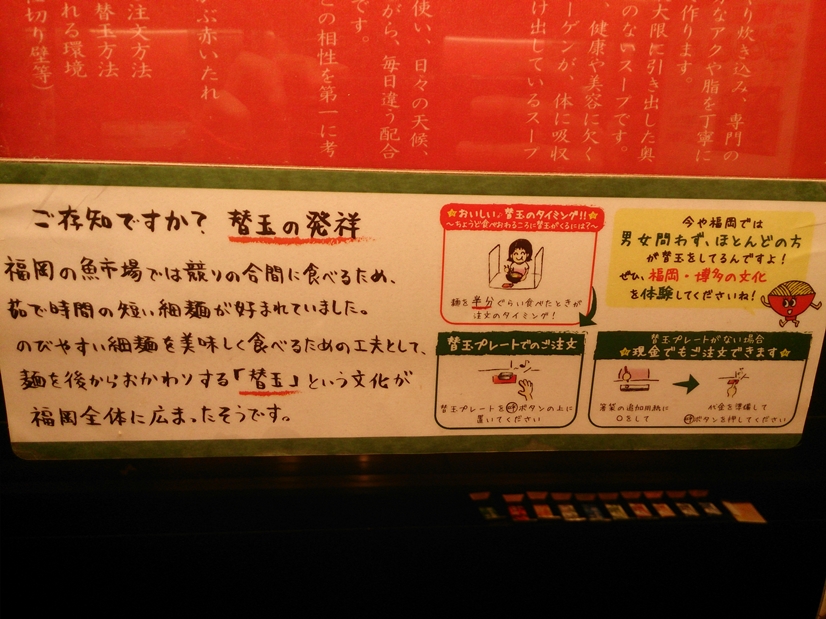 り炊き込み、専門の
なアクや脂を丁寧に
作ります。
大限に引き出した奥
のないスープです。
、健康や美容に欠く
ーゲンが、体に吸収
け出しているスープ
使い、日々の天候、
がら、毎日違う配合
です。
この相性を第一に考
ぶ赤いたれ
注文方法
替玉方法
れる環境
仕切り壁等）
ご存知ですか？ 替玉の発祥
福岡の魚市場では競りの合間に食べるため、
茹で時間の短い細麺が好まれていました。
のびやすい細麺を美味しく食べるための工夫として、
麺を後からおかわりする「替玉」という文化が
福岡全体に広まったそうです。
★おいしい♪替玉のタイミング!!★
〜ちょうど食べおわるころに替玉がくるには？〜
麺を半分ぐらい食べたときが
注文のタイミング！
今や福岡では
男女問わず、ほとんどの方
が替玉をしてるんですよ！
ぜひ、福岡・博多の文化
を体験してくださいね！
替玉プレートでのご注文
替玉プレートを㊺ボタンの上に
置いてください
替玉プレートがない場合
★現金でもご注文できます★
箸袋の追加用紙に
○をして
代金を準備して
ボタンを押してください